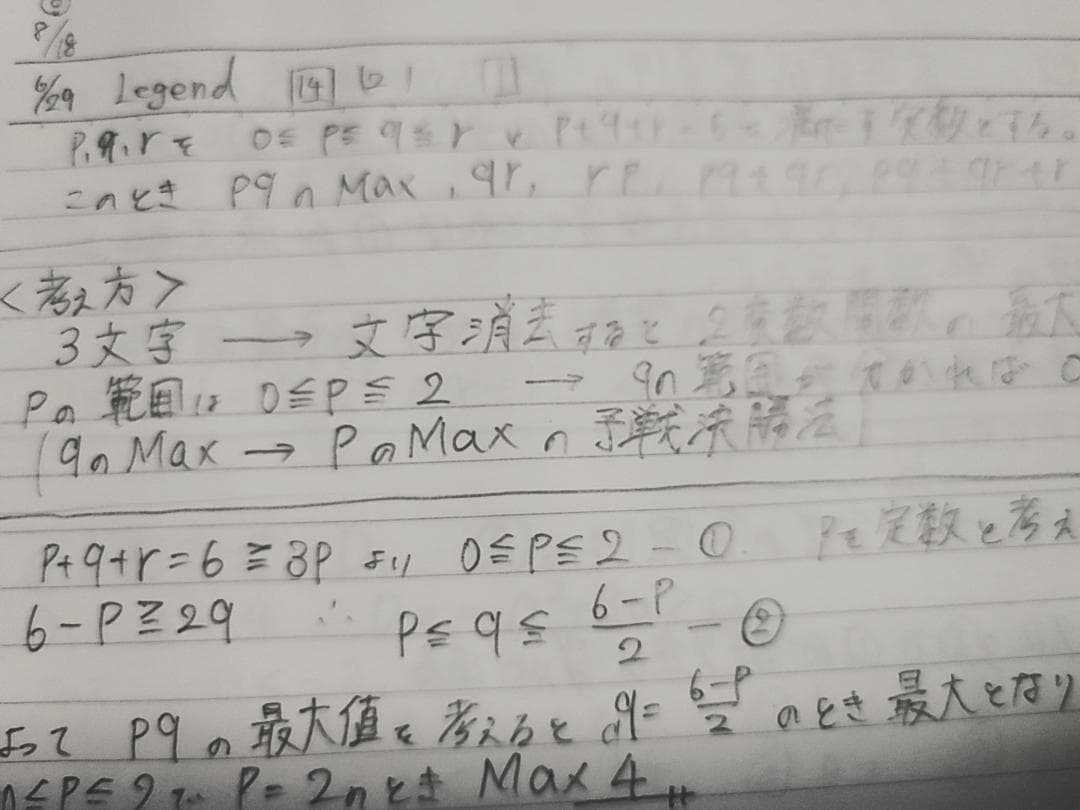 ②
8/18
6/29 Legend 14
p,q,rを 0≦p≦q≦r と p+q+r=6を満たす実数とする。
このとき pqのMax, qr, rp, pq+qr, pq+qr+r
<考え方>
3文字 → 文字消去すると 2変数関数の最大
Pの範囲は 0≦P≦2 → qの範囲が分かれば
(qのMax → PのMaxの予戦決勝法)
P+q+r=6≧3P より 0≦P≦2 - ① Pを定数と考え
6-P≧2q ∴ P≦q≦(6-P)/2 - ②
よって pqの最大値を考えると q=(6-P)/2 のとき最大となり
0≦P≦2で P=2のとき Max 4